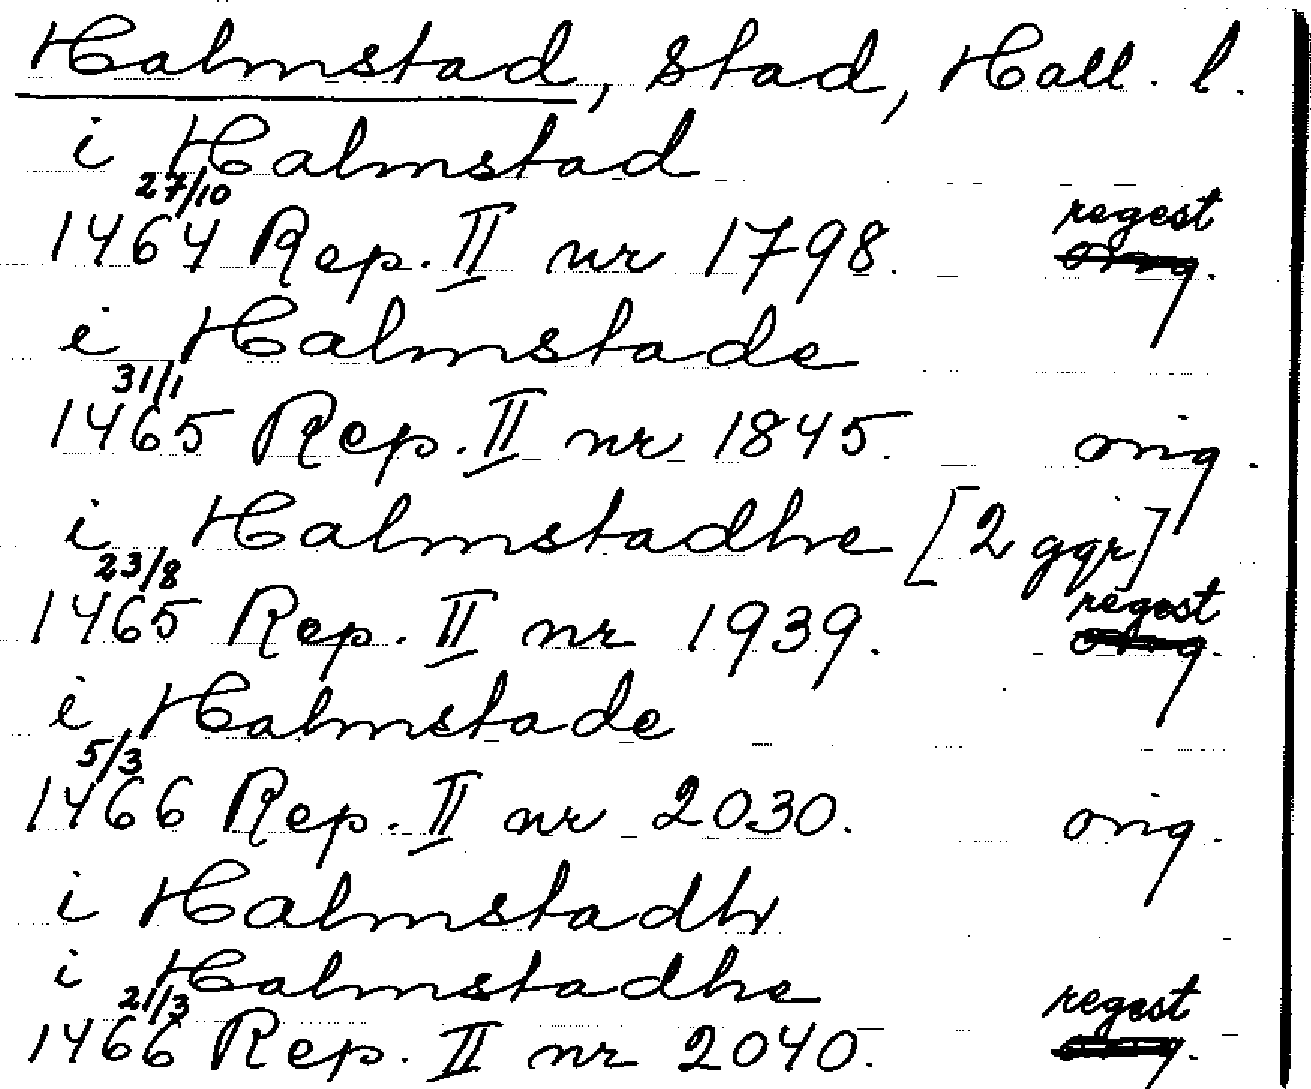 Halmstad, stad, Hall. l.
i Halmstad
27/10
1464 Rep. II nr 1798. regest orig.
i Halmstade
31/1
1465 Rep. II nr 1845. orig.
i Halmstadhe [2 ggr]
23/8
1465 Rep. II nr 1939. regest orig.
i Halmstade
5/3
1466 Rep. II nr 2030. orig.
i Halmstadh
i Halmstadhe
21/3
1466 Rep. II nr 2040. regest orig.